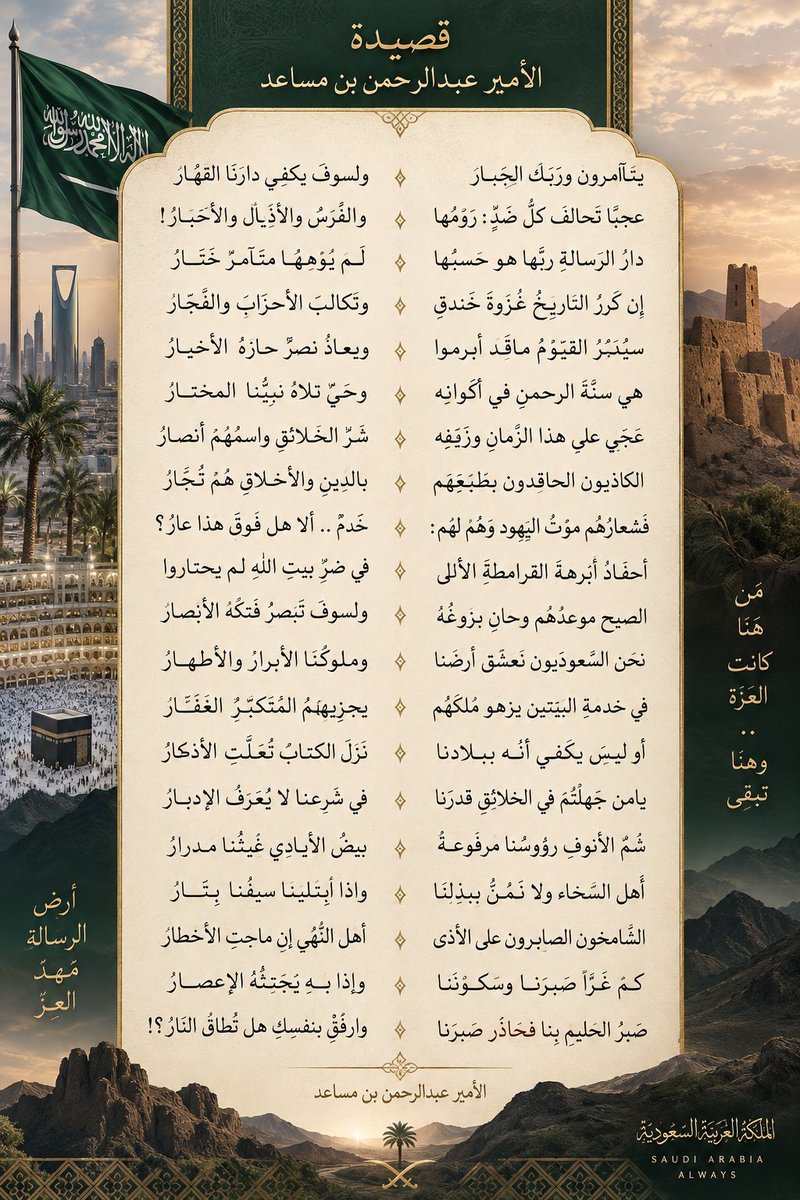 قصيدة
الأمير عبدالرحمن بن مساعد
لا إله إلا الله محمد رسول الله
يتَآمرون ورَبَكَ الجَبـار ولسوفَ يكفِي دارَنَا القهَارُ
عجبًا تَحالفَ كلُّ ضَدٍّ: رَوْمُها والفَّرَسُ والأذَيالُ والأحَبَـارُ!
دارُ الرَسالةِ ربَّها هو حَسبُها لَـم يُوْهِهُـا متَآمرّ خَتَـارُ
إن كَررُ التَاريِخُ غُزوَةَ خَندقِ وتَكالبَ الأحزَابَ والفَجّارُ
سيُدَبُرُ القيَوْمُ ماقَد أبرموا ويعاذُ نصرَّ حازهُ الأخيـارُ
هي سنَّةَ الرحمنِ في أكَوانِه وحَيّ تلاهُ نبِيُّنا المختـارُ
عَجَبي علي هذا الزَّمانِ وزَيَفِه شَرِّ الخَلائقِ واسمُهُمْ أنصـارُ
الكاذبون الحاقِدون بطَبَعِهَم بالدِينِ والأخلاقِ هُمْ تُجَّارُ
فَشعارُهُم موْتُ اليَهِود وَهُمْ لهُم: خَدمٌ .. ألا هل فَوقَ هذا عارُ؟
أحفَادُ أَبَرهةَ القرامطةِ الأللى في ضرِّ بيتِ اللهِ لم يحتاروا
الصيح موعدُهُم وحانِ بزَوغُهُ ولسوفَ تَبَصرُ فَتكُهُ الأبْصارُ
نحَن السَّعودَيون نَعشَق أرضَنا وملوكُنَا الأبرارُ والأطهـارُ
في خدمةِ البيَتين يزهو مُلكَهُم يجزِيهمُ المُتَكبّرِّ الغَفَّـارُ
أو ليسَ يكَفي أنُـه ببـلادنا نَزَلَ الكتابُ تُعَلَّتِ الأذكارُ
يامن جَهلْتُمَ في الخلائِقِ قدرَنا في شَرِعنا لا يُعَرَفُ الإدبـارُ
شُمُّ الأنوفِ رؤوسُنا مرفَوعـةُ بيضُ الأيـادِي غَيثُنا مـدرارُ
أَهل السَّخاء ولا نَمُـنُّ بِبذِلِنَا واذا أبِتَلينا سيفُنـا بِتَّـارُ
الشَّامخون الصابرون على الأذى أهل النُّهُي إنِ ماجتِ الأخطارُ
كـمْ غَـرَّاً صَبرَنـا وسَكـوْنَنا وإذا بـهِ يَجَتِثُّهُ الإعصـارُ
صَبرُ الحَليمِ بِنا فحَاذَر صَبرَنا وارفُقْ بنفسِكِ هل تُطاقُ النَارُ؟!
الأمير عبدالرحمن بن مساعد
مَن
هَنَا
كانت
العَزَة
..
وهنَا
تبقِى
أرض
الرسالة
مَهدَ
العِزّ
المملكة العربية السعودية
SAUDI ARABIA
ALWAYS